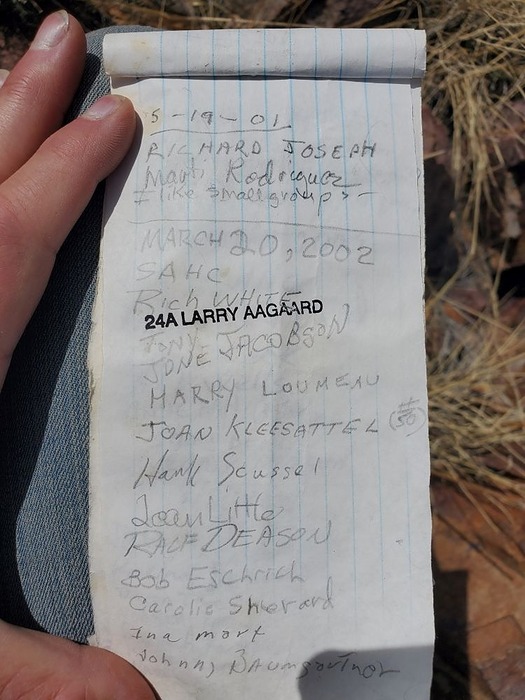 5-19-01
RICHARD JOSEPH
Marti Rodriguez
I like small groups -
MARCH 20, 2002
SAHC
Rich WHITE
24A LARRY AAGAARD
TONY
JONE JACOBSON
HARRY LOUMEAU
JOAN KLEESATTEL (#50)
Hank Soussel
Joan Little
RALF DEASON
Bob Eschrich
Carolie Sherard
Ina mort
Johnny BAumgartner